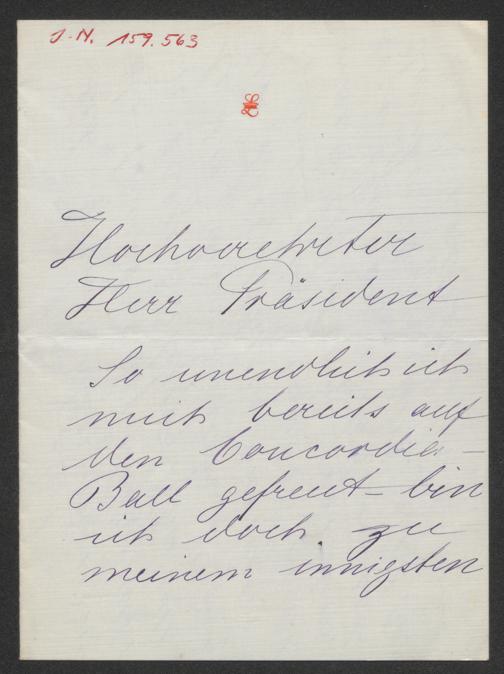 J.N. 159.563
Hochverehrter
Herr Präsident
So unendlich ich
mich bereits auf
den Concordia-
Ball gefreut – bin
ich doch zu
meinem innigsten